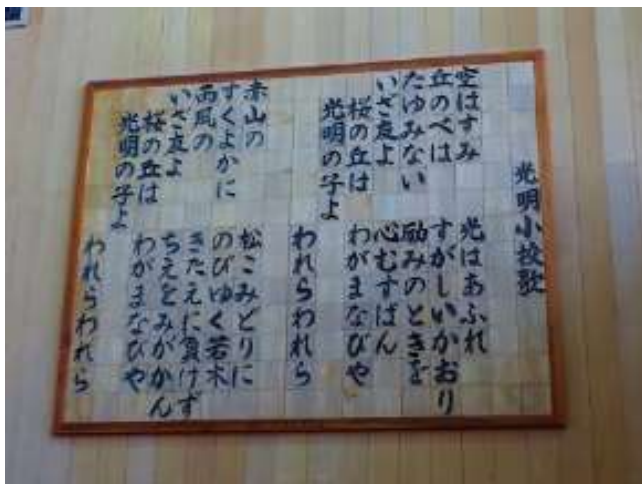 光明小校歌
空はすみ　光はあふれ
丘のべは　すがしいかおり
たゆみない　励みのときを
いざ友よ　心むすばん
桜の丘は　わがまなびや
光明の子よ　われらわれら
赤山の　松こみどりに
すくよかに　のびゆく若木
雨風の　きたえに負けず
いざ友よ　ちえをみがかん
桜の丘は　わがまなびや
光明の子よ　われらわれら